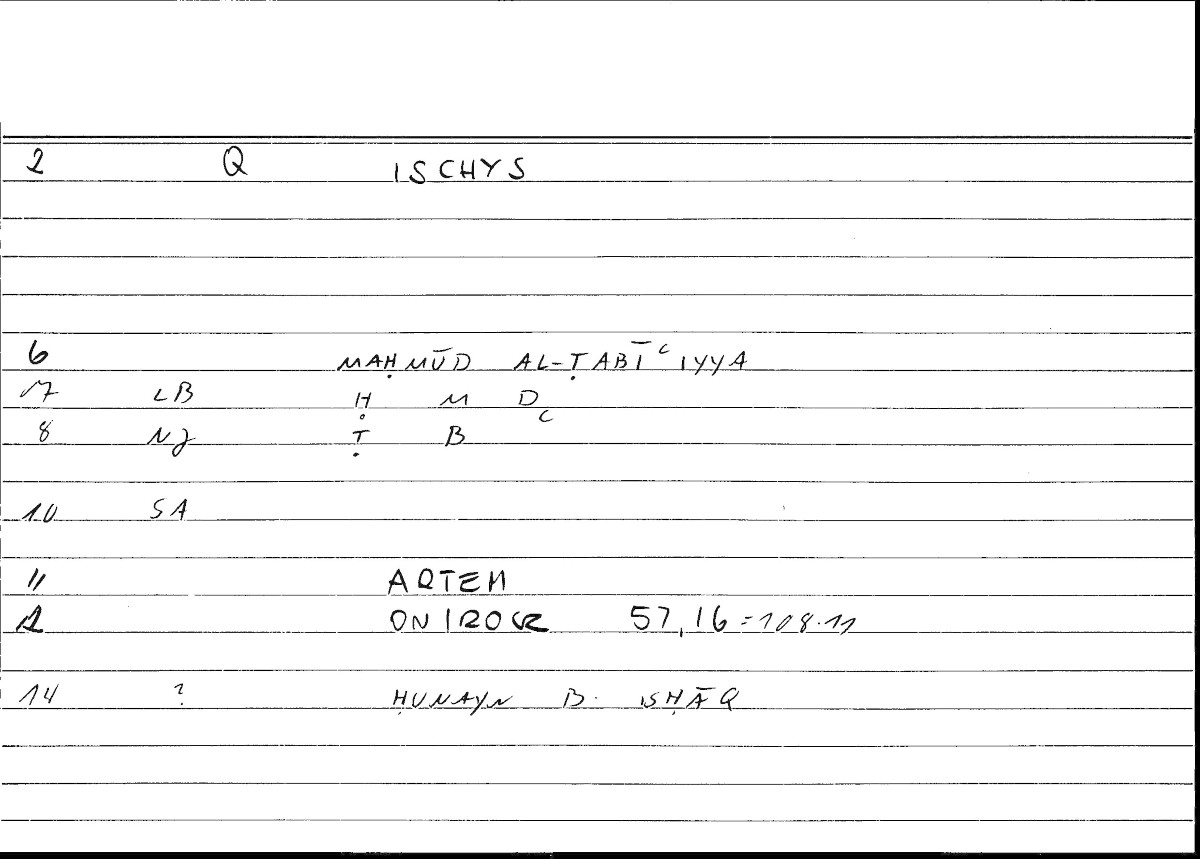 2 Q ISCHYS
6 MAḤMŪD AL-ṬABĪʿIYYA
7 LB Ḥ M D
8 NJ Ṭ B ʿ
10 SA
11 ARTEM
12 ONIROCR 57,16 = 108.11
14 ? ḤUNAYN B. ISḤĀQ